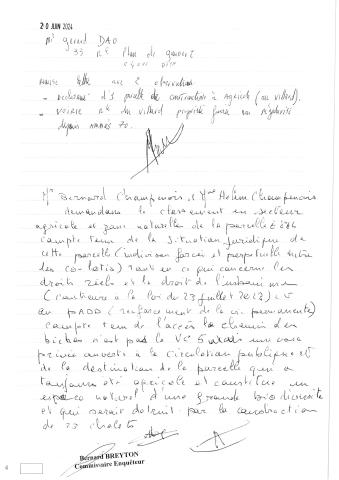 20 JUIN 2024
Mr Gerard DAO
33 Rte Plan de
remise lettre avec 2 observations
- Déclassé d'1 parcelle de constructible à Agricole (au villard).
- VOIRIE Rte du Villard propriété privée
depuis années 70.
Mr Bernard Champenois, et Mme Hélène Champenois
demandons le classement en secteur
agricole et zone naturelle de la parcelle E 276
compte tenu de la situation juridique de
cette parcelle (indivision forcée et perpétuelle entre
les co-lotis) tant en ce qui concerne les
droits réels et le droit de l'urbanisme
(l'antérieure à la loi du 23 juillet
au PADD (renforcement de la vie permanente)
compte tenu de l'accès le chemin d'en
biches n'est pas le VC 5 mais une voie
privée ouverte à la circulation publique et
de la destination de la parcelle qui a
toujours été agricole et constitue un
espace naturel d'une grande biodiversité
et qui serait détruit par la construction
de 23 chalets
Bernard BREYTON
Commissaire Enquêteur